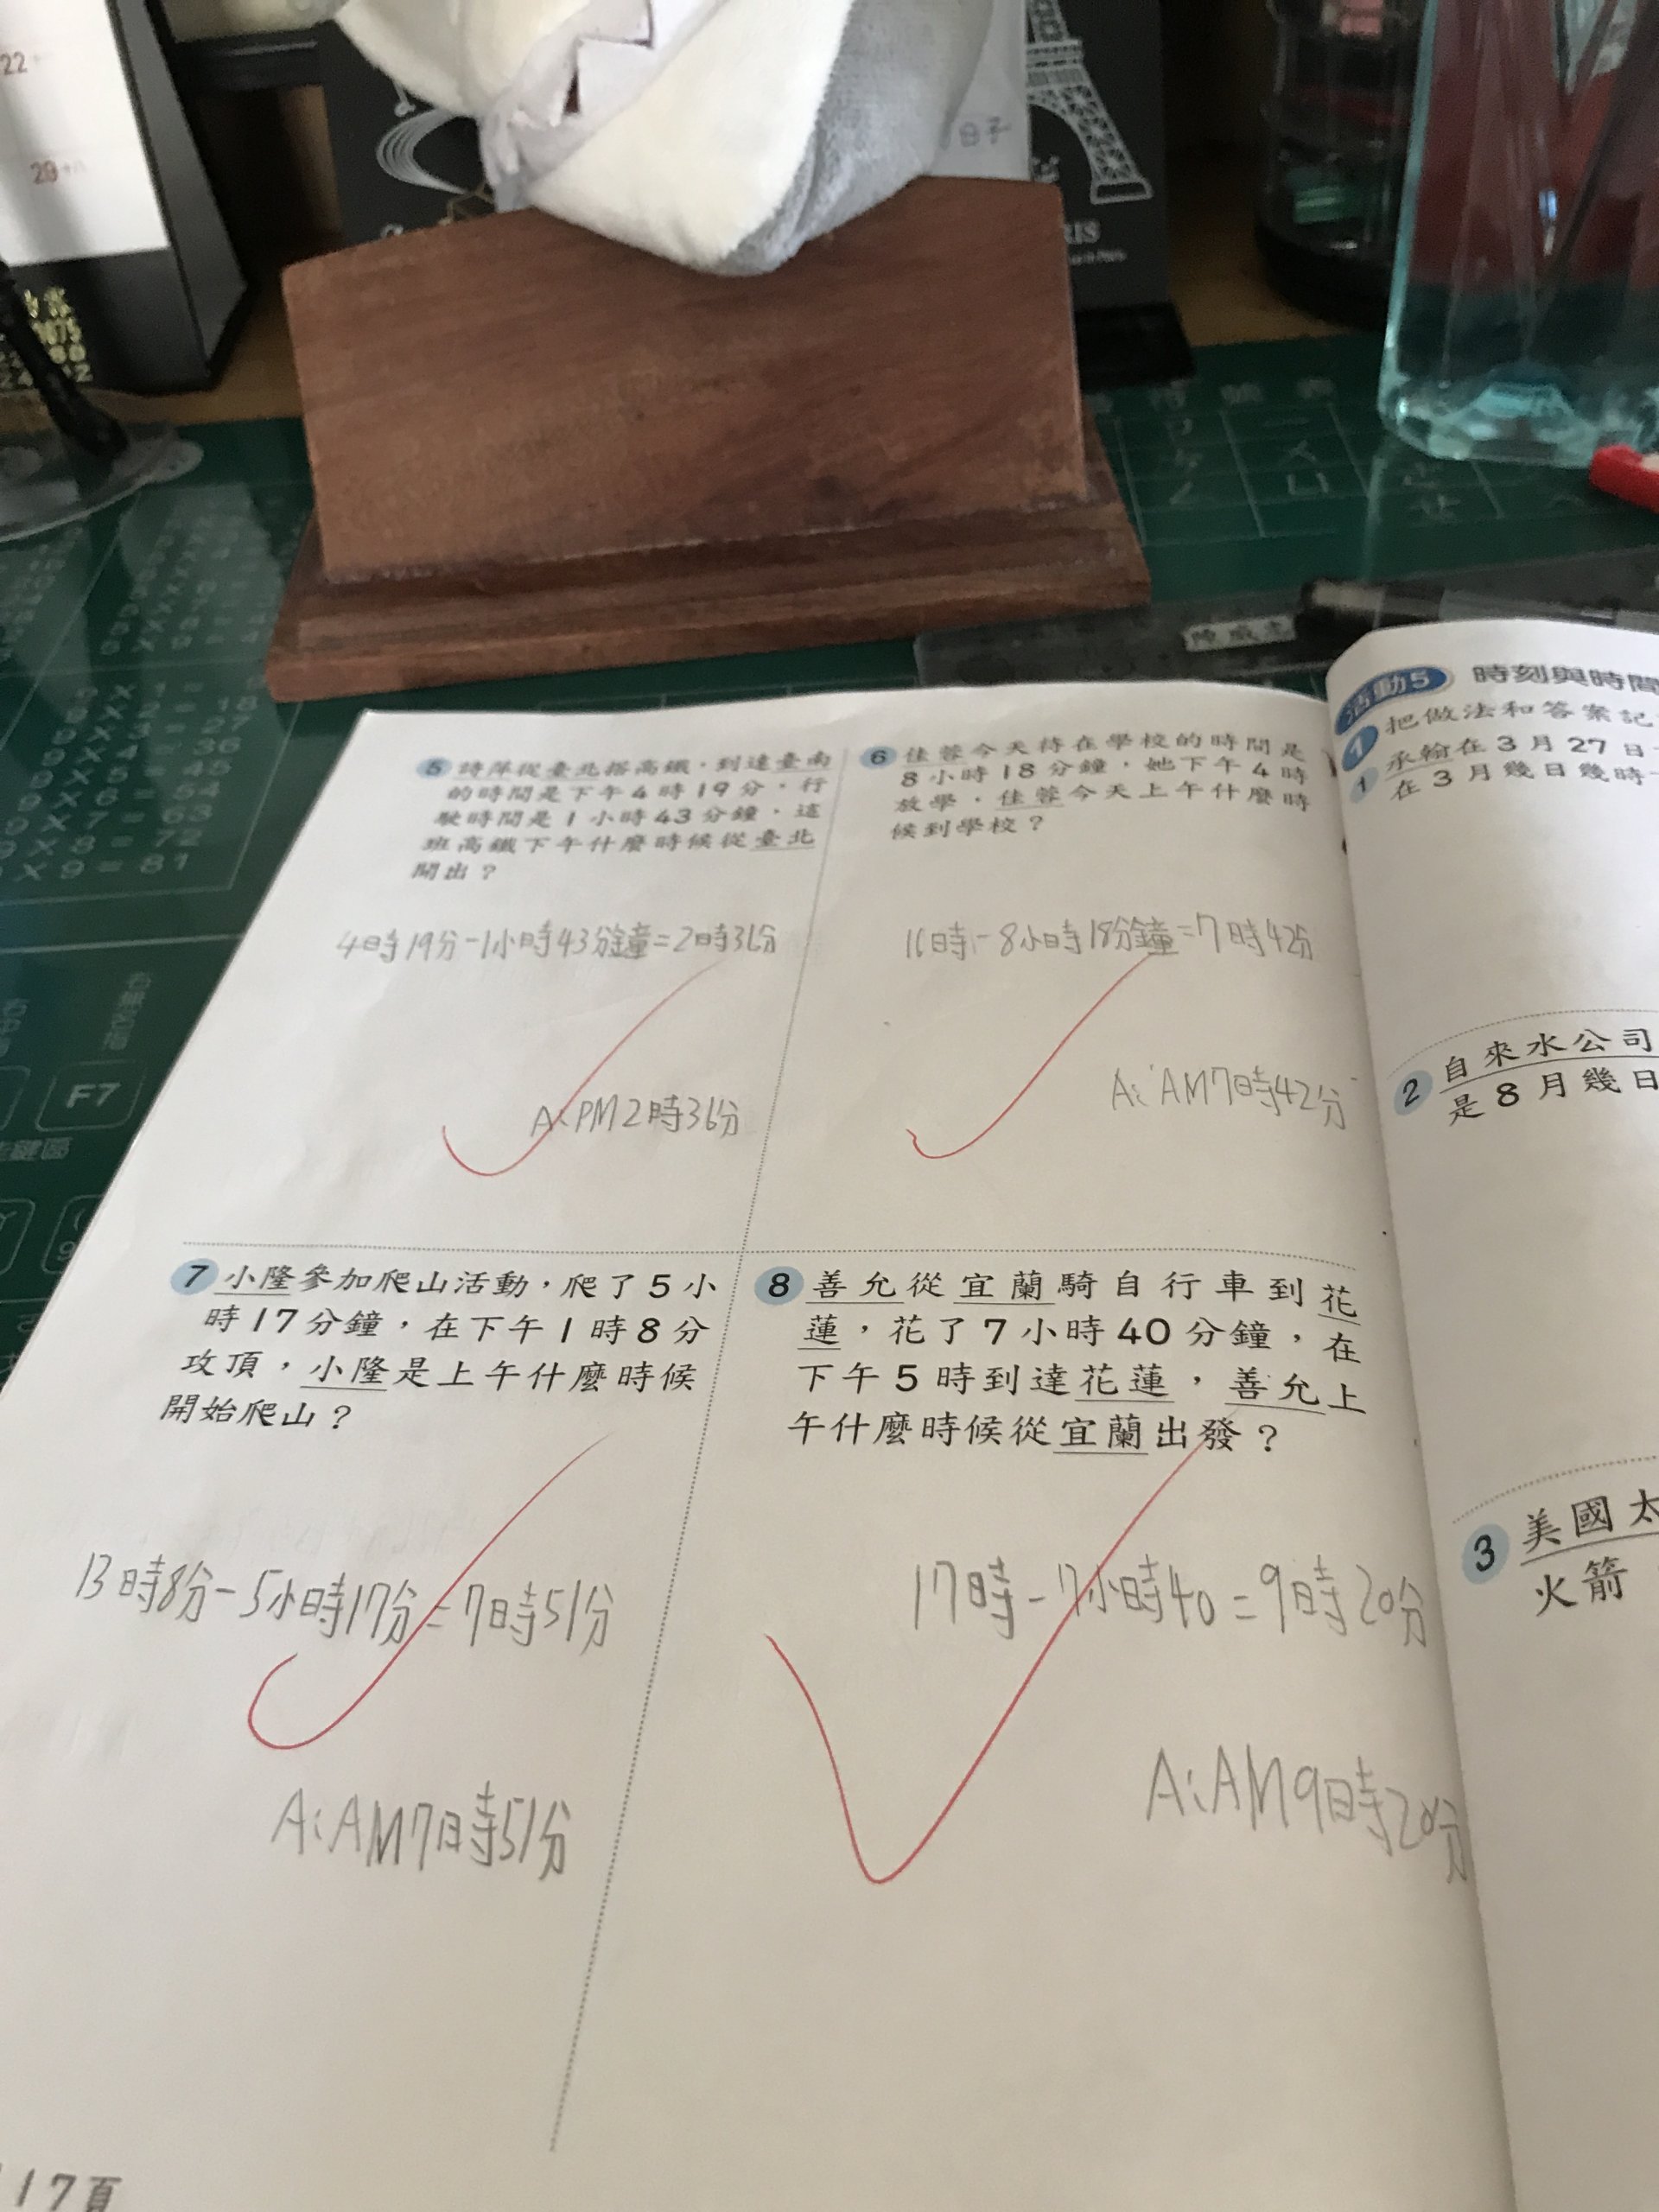 22
29
日子
RIS
9 X 1 =
9 X 2 = 18
9 X 3 = 27
9 X 4 = 36
9 X 5 = 45
9 X 6 = 54
9 X 7 = 63
9 X 8 = 72
9 X 9 = 81
F7
5 詩萍從臺北搭高鐵，到達臺南
的時間是下午4時19分，行
駛時間是1小時43分鐘，這
班高鐵下午什麼時候從臺北
開出？
4時19分-1小時43分鐘=2時36分
A:PM2時36分
6 佳蓉今天待在學校的時間是
8小時18分鐘，她下午4時
放學，佳蓉今天上午什麼時
候到學校？
16時-8小時18分鐘=7時42分
A:AM7時42分
7 小隆參加爬山活動，爬了5小
時17分鐘，在下午1時8分
攻頂，小隆是上午什麼時候
開始爬山？
13時8分-5小時17分=7時51分
A:AM7時51分
8 善允從宜蘭騎自行車到花
蓮，花了7小時40分鐘，在
下午5時到達花蓮，善允上
午什麼時候從宜蘭出發？
17時-7小時40=9時20分
A:AM9時20分
17頁
活動5 時刻與時間
1 把做法和答案記
1 承翰在3月27日
在3月幾日幾時
2 自來水公司
是8月幾日
3 美國太
火箭